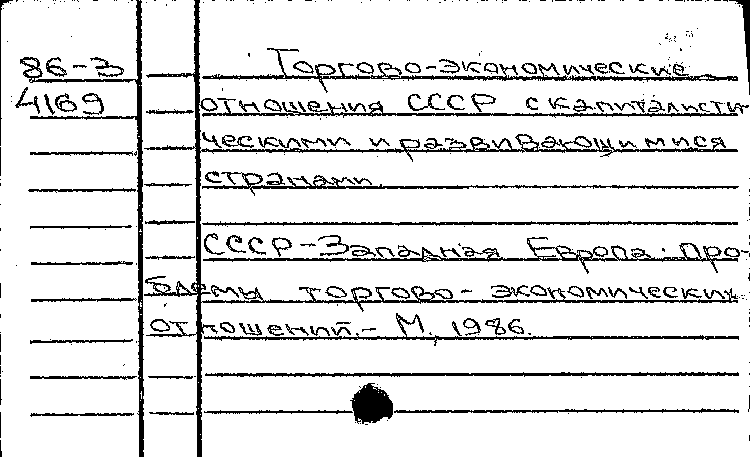 86-3 Торгово-экономические
4169 отношения СССР с капиталисти-
ческими и развивающимися
странами.
СССР-Западная Европа: про-
блемы торгово-экономических
отношений.- М., 1986.